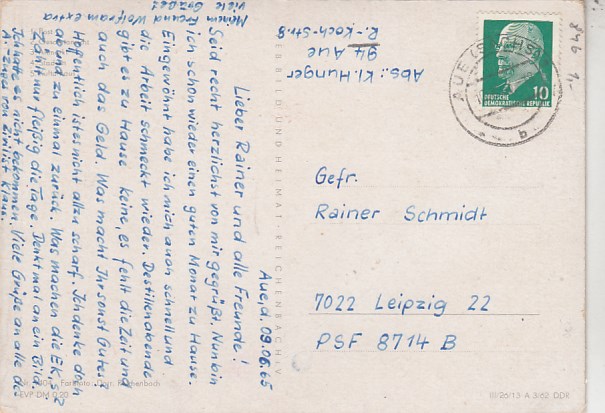 Aue, d. 09.06.65
Lieber Rainer und alle Freunde!
Seid recht herzlichst von mir gegrüßt. Nun bin
ich schon wieder einen guten Monat zu Hause.
Eingewöhnt habe ich mich auch schnell und
die Arbeit schmeckt wieder. Destillenabende
gibt es zu Hause keine, es fehlt die Zeit und
auch das Geld. Was macht Ihr sonst Gutes?
Hoffentlich ist es nicht allzu scharf. Ich denke doch
ab und zu einmal zurück. Was machen die EK's?
Zählt nur fleißig die Tage. Denkt mal an ein Bild.
Ich habe es nicht bekommen. Viele Grüße an alle des
A.-Zuges von Zivilist Klaus.
Meinem Freund Wolfram extra
viele Grüße!
Abs.: Kl. Hunger
94 Aue
R.-Koch-Str. 8
AUE (SACHS)
b
10
DEUTSCHE
DEMOKRATISCHE REPUBLIK
Gefr.
Rainer Schmidt
7022 Leipzig 22
PSF 8714 B
BILD UND HEIMAT · REICHENBACH i. V.
EVP DM 0,20
III/26/13 A 3/62 DDR